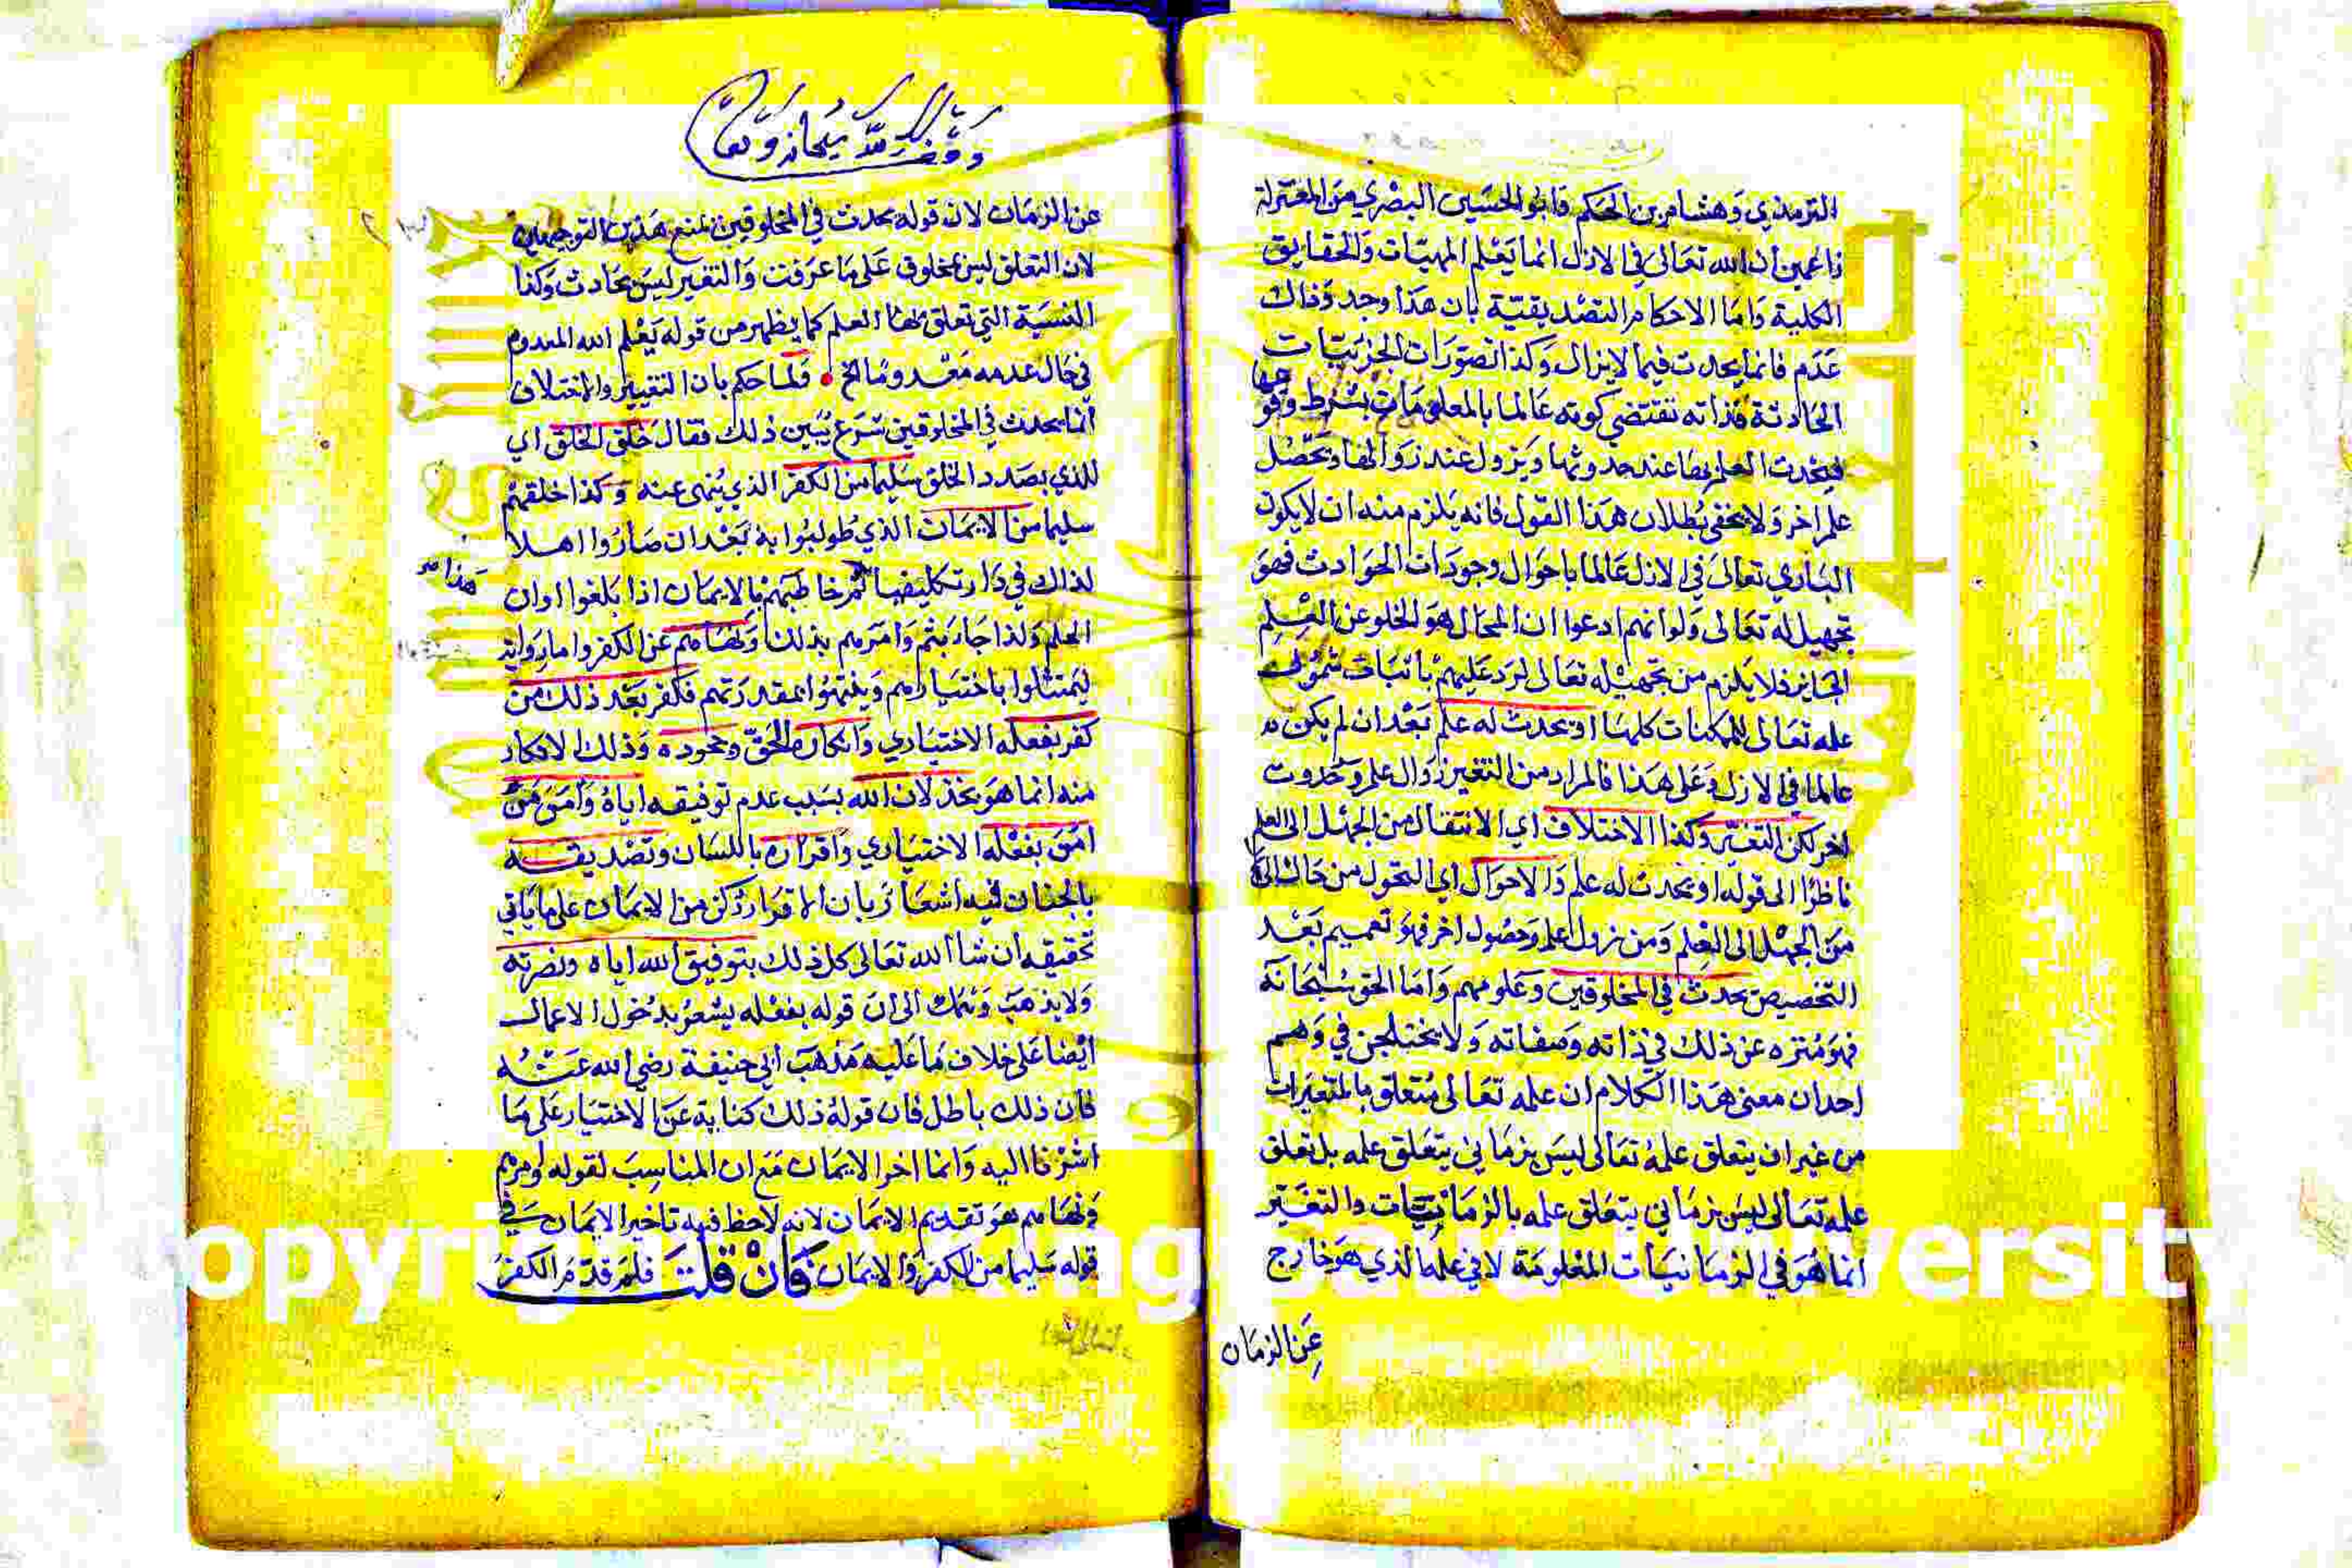 الترمذي وهشام بن الحكم وابو الحسين البصري من المعتزلة
زاعمين ان الله تعالى في الازل انما يعلم المهيات والحقايق
الكلية واما الاحكام التصديقية بان هذا وجد وذاك
عدم فانما يحدث فيما لا يزال وكذا تصورات الجزييات
الحادثة فذاته تقتضي كونه عالما بالمعلومات بشرط وقو
عها
فيحدث العلم بها عند حدوثها ويزول عند زوالها ويحصل
علم اخر ولا يخفى بطلان هذا القول فانه يلزم منه ان لا يكون
الباري تعالى في الازل عالما باحوال وجودات الحوادث فهو
تجهيل له تعالى ولو انهم ادعوا ان المحال هو الخلو عن العلم
الجايز فلا يلزم من تجهيله تعالى لرد عليهم باثبات شمول
علمه تعالى للممكنات كلها او يحدث له علم بعد ان لم يكن
عالما في الازل وعلى هذا فالمراد من التغير زوال علم وحدوث
اخر لكن التغير وكذا الاختلاف اي الانتقال من الجهل الى العلم
ناظرا الى قوله او يحدث له علم دا الاحوال اي التحول من حال الى
من الجهل الى العلم ومن زوال علم وحصول اخر فهو تعميم بعد
التخصيص يحدث في المخلوقين وعلومهم واما الحق سبحانه
فهو منزه عن ذلك في ذاته وصفاته ولا يختلجن في وهم
احد ان معنى هذا الكلام ان علمه تعالى متعلق بالمتغيرات
من غير ان يتعلق علمه تعالى ليس بزماني يتعلق علمه بل تعلق
علمه تعالى ليس بزماني يتعلق علمه بالزمانيات والتغير
انما هو في الزمانيات المعلومة لا في علمه الذي هو خارج
عن الزمان
عن الزمان لان قوله يحدث في المخلوقين يمنع هذين التوجيهين
لان التعلق ليس بمخلوق على ما عرفت والتغير ليس بحادث وكذا
النسبة التي تعلق بها العلم كما يظهر من قوله يعلم الله المعدوم
في حال عدمه معدوما الخ فلما حكم بان التغيير والاختلاف
انما يحدث في المخلوقين شرع يبين ذلك فقال خلق الخلق اي
للذي بصدد الخلق سليما من الكفر الذي ينهى عنه وكذا خلقهم
سليما من الايمان الذي طولبوا به بعد ان صاروا اهلا
لذلك في دار تكليفها ثم خاطبهم بالايمان اذا بلغوا اوان
هذا
الحلم ولذا جاء بثم وامرهم بذلك ونهاهم عن الكفر واماروايد
ليمتثلوا باختيارهم وينتهوا بقدرتهم فكفر بعد ذلك من
كفر بفعله الاختياري وانكاره الحق وجحوده وذلك الانكار
منه انما هو بخذلان الله بسبب عدم توفيقه اياه وآمن من
امن بفعله الاختياري واقراره باللسان وتصديقه
بالجنان فيه اشعار بان الاقرار ركن من الايمان على ما ياتي
تحقيقه ان شا الله تعالى كل ذلك بتوفيق الله اياه ونصرته
ولا يذهب وهمك الى ان قوله بفعله يشعر بدخول الاعمال
ايضا على خلاف ما عليه مذهب ابي حنيفة رضي الله عنه
فان ذلك باطل فان قوله ذلك كناية عن الاختيار على ما
اشرنا اليه وانما اخر الايمان مع ان المناسب لقوله امرهم
ونهاهم هو تقديم الايمان لانه لاحظ فيه تاخير الايمان في
قوله سليما من الكفر والايمان فان قلت فلم قدم الكفر